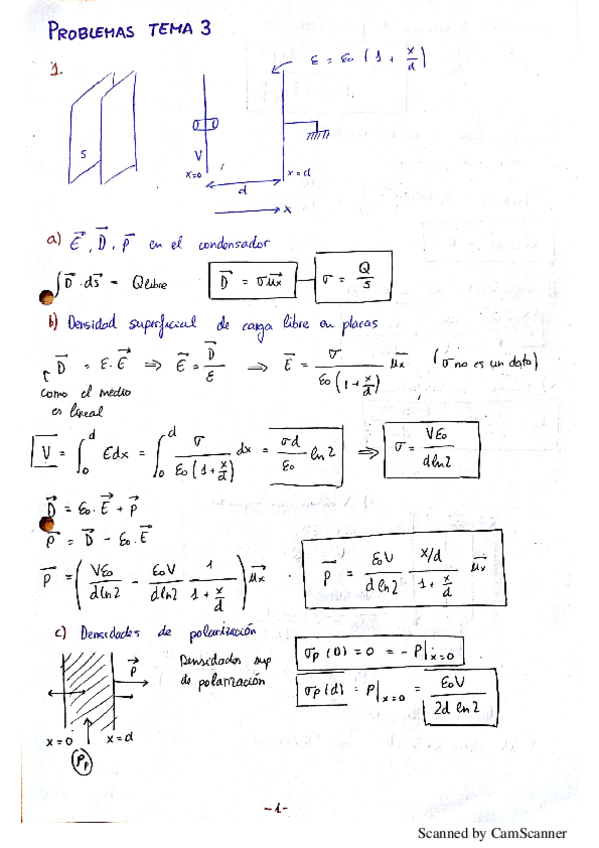 PROBLEMAS TEMA 3
1.
ε = ε₀ (1 + x/d)
S
V
x=0
x=d
d
x
a) E⃗, D⃗, P⃗ en el condensador
∫D⃗·ds⃗ = Qlibre
D⃗ = σu⃗x
σ = Q/S
b) Densidad superficial de carga libre en placas
D⃗ = ε·E⃗ ⇒ E⃗ = D⃗/ε ⇒ E⃗ = σ/(ε₀(1+x/d)) u⃗x (σ no es un dato)
como el medio
es lineal
V = ∫₀ᵈ Edx = ∫₀ᵈ σ/(ε₀(1+x/d)) dx = σd/ε₀ ln2 ⇒ σ = Vε₀/(d ln2)
D⃗ = ε₀·E⃗ + P⃗
P⃗ = D⃗ - ε₀·E⃗
P⃗ = (Vε₀/(d ln2) - ε₀V/(d ln2) 1/(1+x/d)) u⃗x
P⃗ = ε₀V/(d ln2) (x/d)/(1+x/d) u⃗x
c) Densidades de polarización
P⃗
Densidades sup
de polarización
σp(0) = 0 = -P|x=0
σp(d) = P|x=0 = ε₀V/(2d ln2)
x=0
x=d
ρp
-1-
Scanned by CamScanner